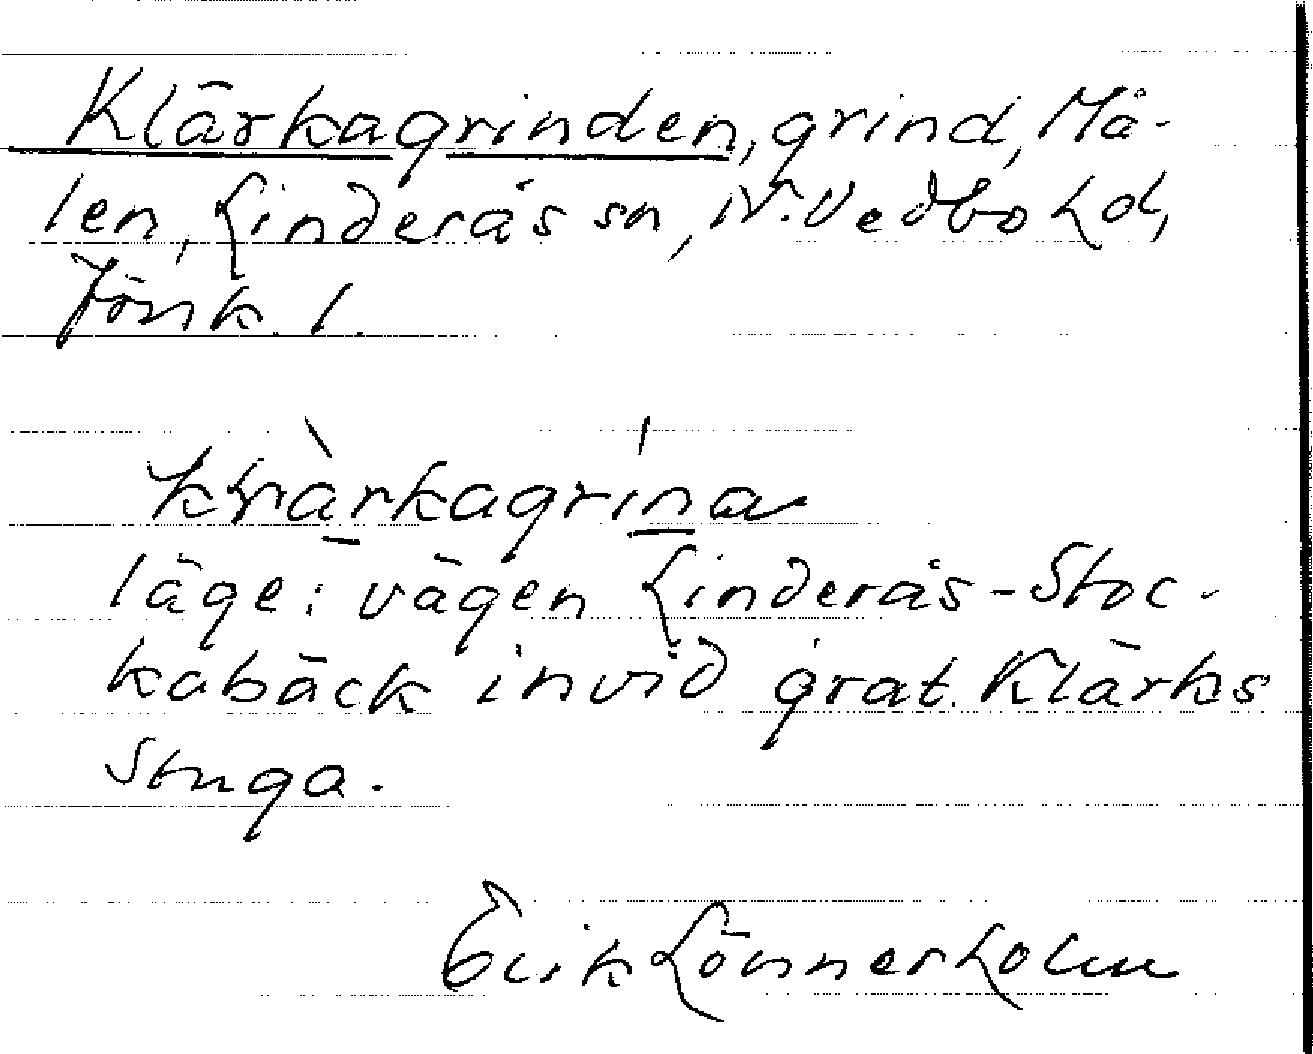 Klärkagrinden, grind, Må-
len, Linderås sn, N. Vedbo hd,
Jönk. l.
läge: vägen Linderås-Stoc-
kabäck invid grat. Klärks
stuga.
Erik Lönnerholm